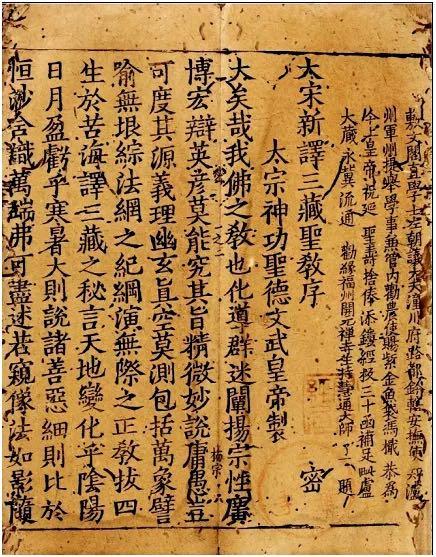 敷文閣直學士左朝議大夫潼川府路都鈐轄安撫使 知瀘
州軍州提舉學事兼管內勸農使賜紫金魚袋馮檝 恭為
今上皇帝祝延 聖壽捨俸添鏤經板三十函補足毗盧
大藏永冀流通 勸緣福州開元禪寺住持慧通大師 了一 題
大宋新譯三藏聖教序 密
太宗神功聖德文武皇帝製
大矣哉我佛之教也化導群迷闡揚宗性廣
博宏辯英彥莫能究其旨精微妙說庸愚豈
可度其源義理幽玄真空莫測包括萬象譬
喻無垠綜法網之紀綱演無際之正教拔四
生於苦海譯三藏之秘言天地變化乎陰陽
日月盈虧乎寒暑大則說諸善惡細則比於
恒沙含識萬端弗可盡述若窺像法如影隨